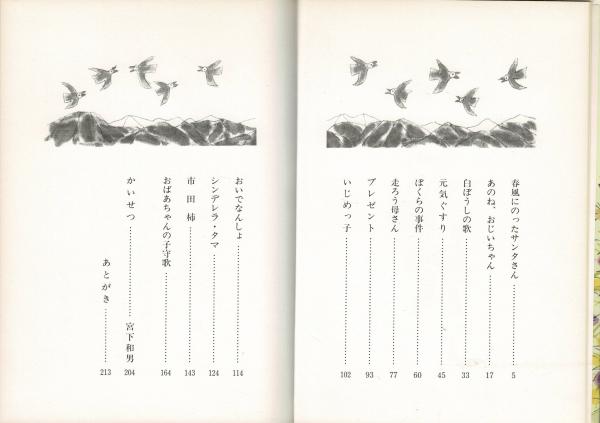 春風にのったサンタさん……………………5
あのね、おじいちゃん……………………17
白ぼうしの歌……………………33
元気ぐすり……………………45
ぼくらの事件……………………60
走ろう母さん……………………77
プレゼント……………………93
いじめっ子……………………102
おいでなんしょ……………………114
シンデレラ・タマ……………………124
市田柿……………………143
おばあちゃんの子守歌……………………164
かいせつ……………………宮下和男 204
あとがき……………………213